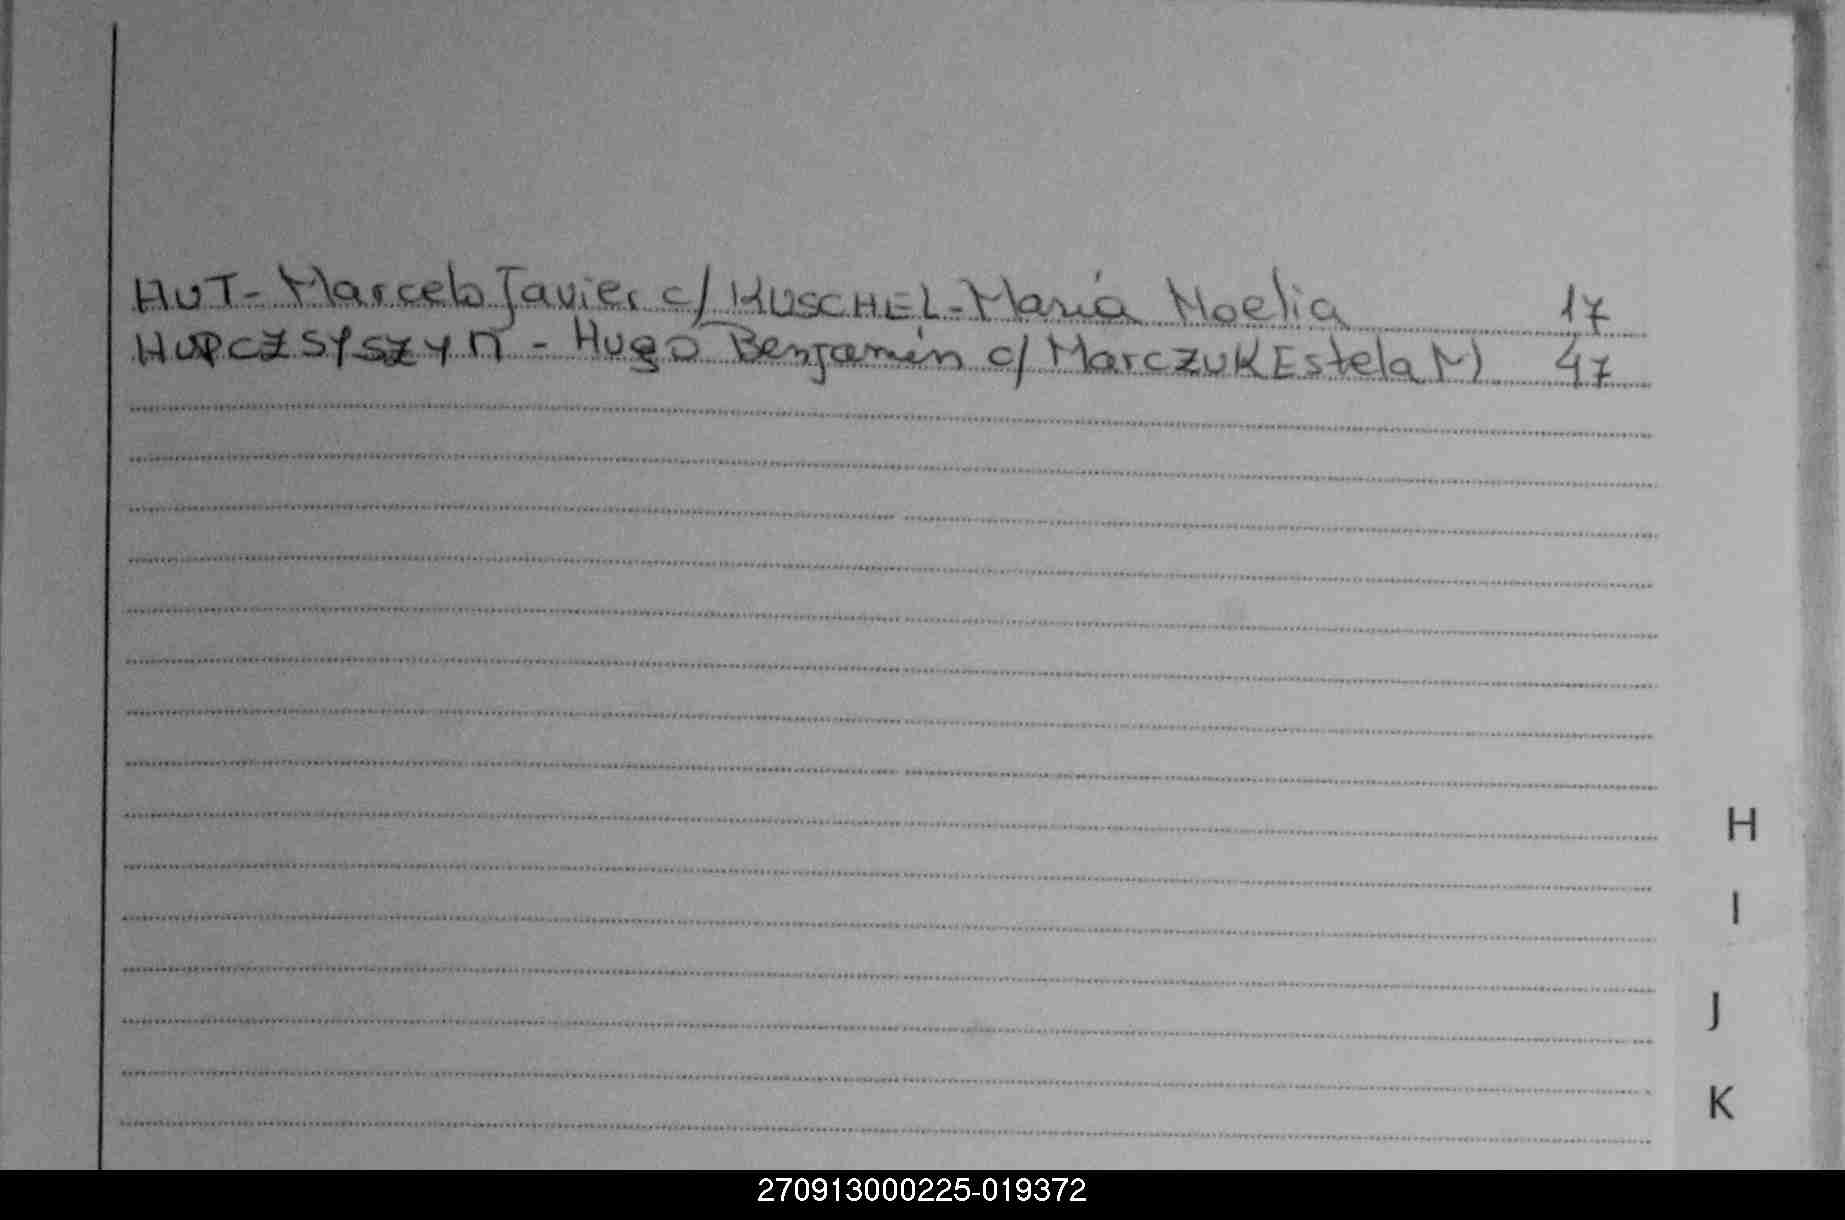 HUT - Marcelo Javier c/ KUSCHEL - María Noelia 17
HUPCZSYSZYN - Hugo Benjamín c/ Marczuk Estela M) 47
H
I
J
K
270913000225-019372